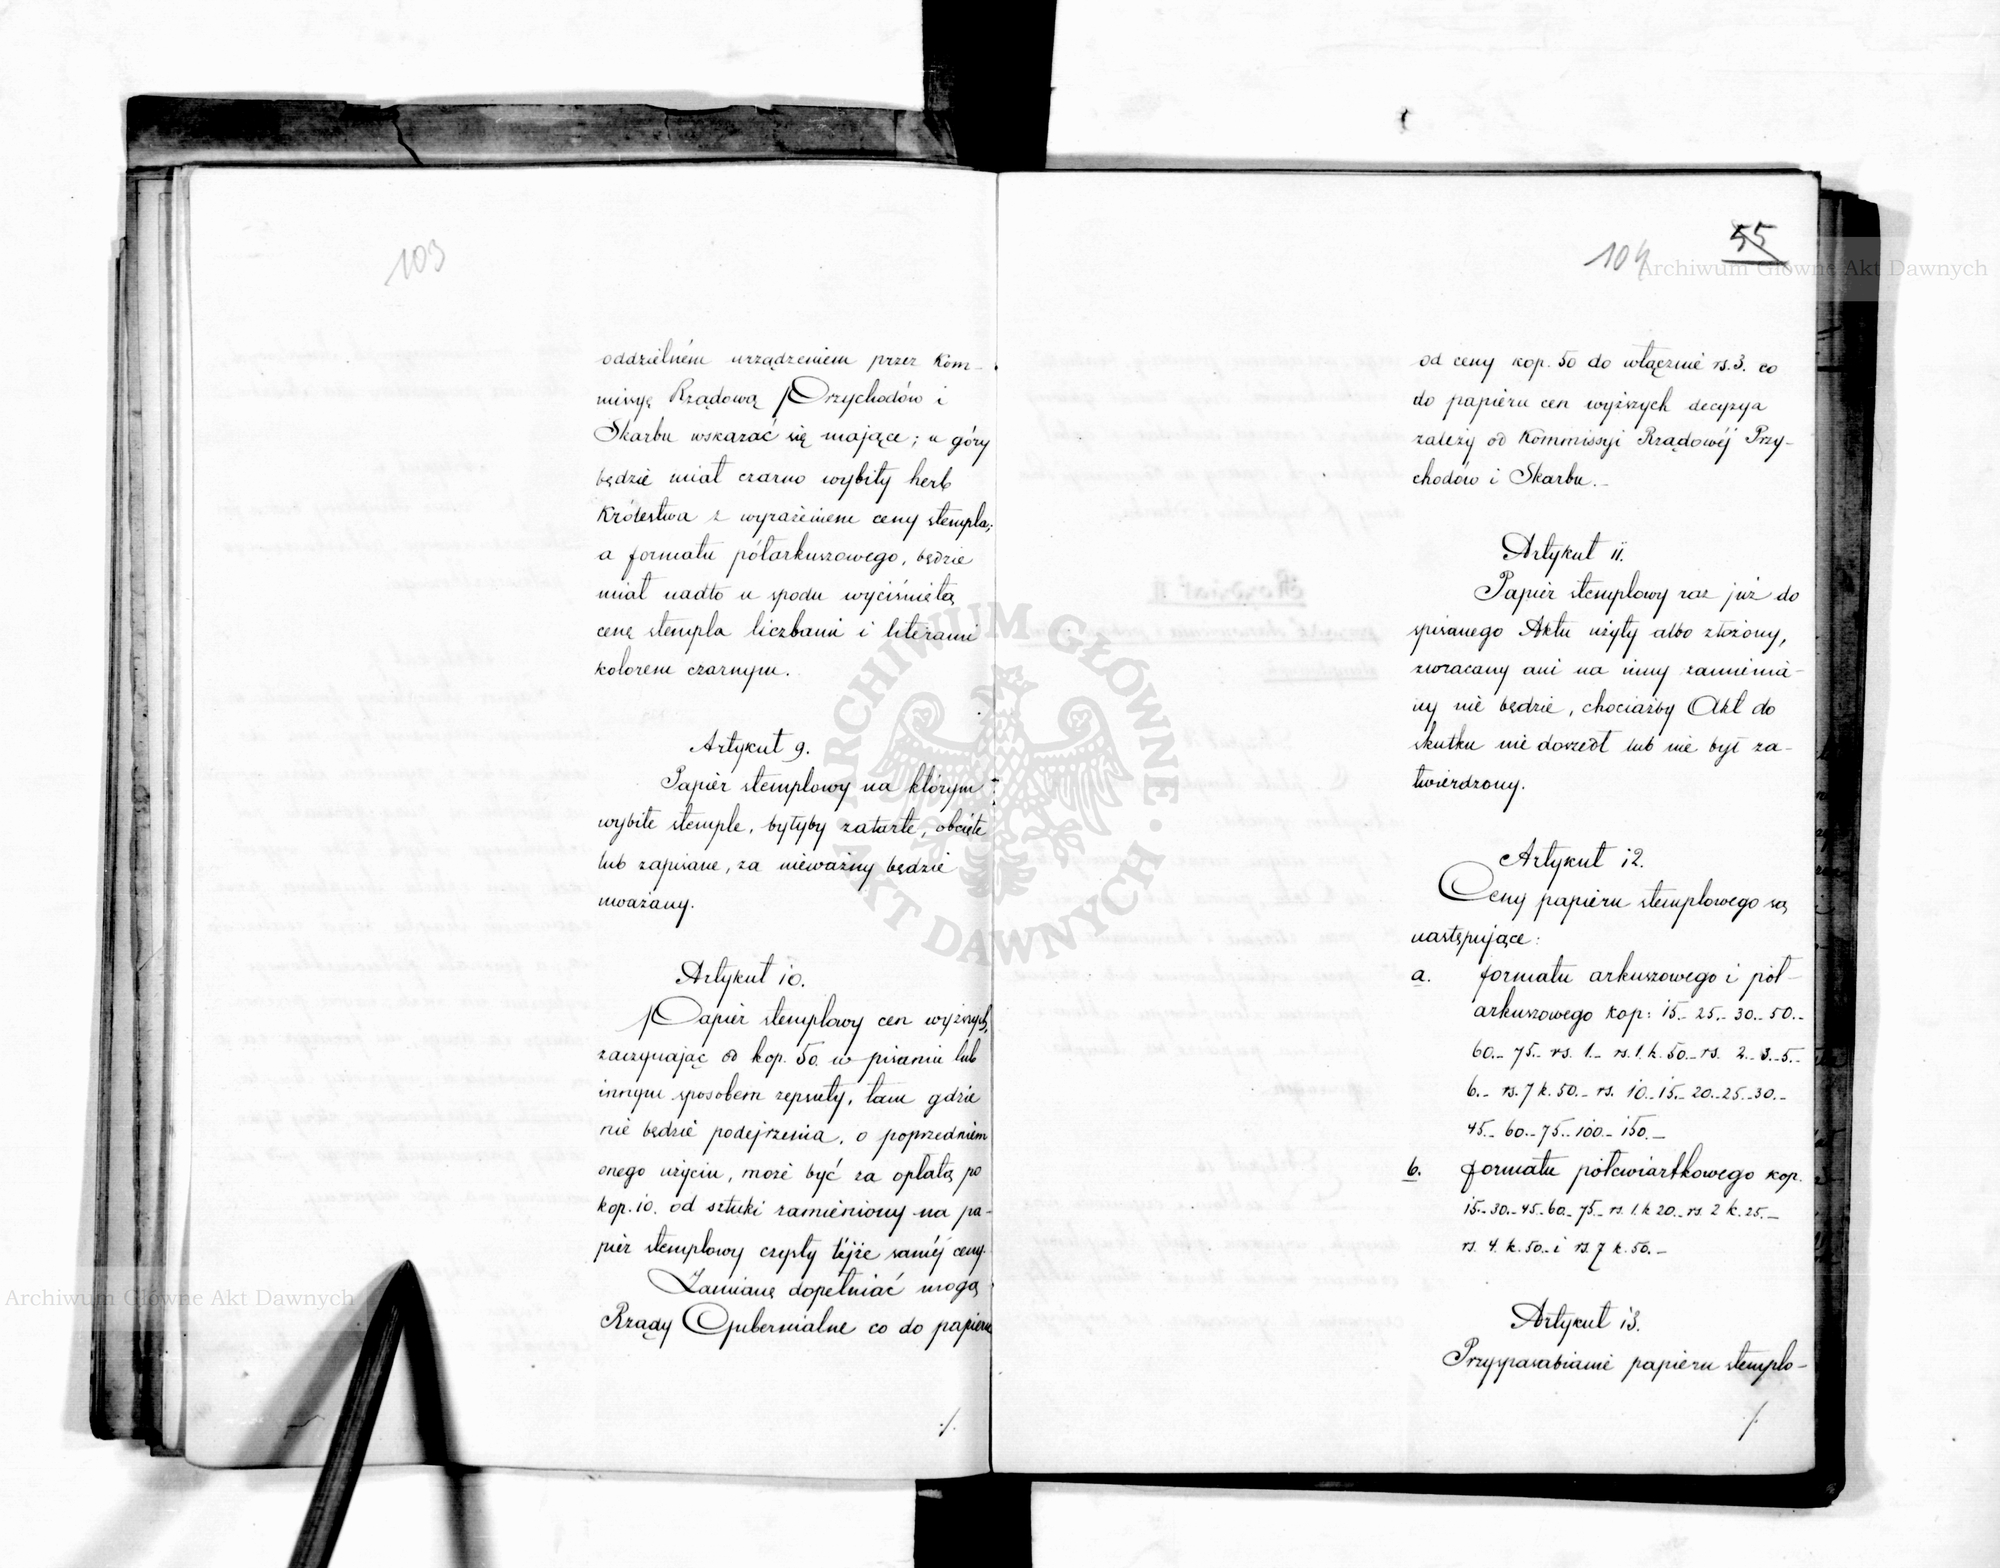 103
oddzielném urządzeniem przez Kom-
missyę Rządową Przychodów i
Skarbu wskazać się mające; u góry
będzie miał czarno wybity herb
Królestwa z wyrażeniem ceny stempla;
a formatu półarkuszowego, będzie
miał nadto u spodu wyciśniętą
cenę stempla liczbami i literami
kolorem czarnym.
Artykuł 9.
Papiér stemplowy na którym
wybite stemple, byłyby zatarte, obcięte
lub zapisane, za nieważny będzie
uważany.
Artykuł 10.
Papiér stemplowy cen wyższych,
zaczynając od kop. 50. w pisaniu lub
innym sposobem zepsuty, tam gdzie
nie będzie podejrzenia, o poprzedniem
onego użyciu, może być za opłatą po
kop. 10. od sztuki zamieniony na pa-
piér stemplowy czysty téjże saméj ceny.
Zamianę dopełniać mogą
Rządy Gubernialne co do papieru
./.
104
55
od ceny kop. 50 do włącznie rs. 3. co
do papiéru cen wyższych decyzya
zależy od Kommissyi Rządowéj Przy-
chodów i Skarbu.-
Artykuł 11.
Papiér stemplowy raz już do
spisanego Aktu użyty albo złożony,
zwracany ani na inny zamienia-
ny nie będzie, chociażby Akt do
skutku nie doszedł lub nie był za-
twierdzony.
Artykuł 12.
Ceny papiéru stemplowego są
następujące:
a. formatu arkuszowego i pół-
arkuszowego kop: 15.- 25.- 30.- 50.-
60.- 75.- rs. 1.- rs. 1. k. 50.- rs. 2.- 3.- 5.-
6.- rs. 7 k. 50.- rs. 10.- 15.- 20.- 25.- 30.-
45.- 60.- 75.- 100.- 150.-
b. formatu półćwiartkowego kop.
15.- 30.- 45.- 60.- 75.- rs. 1. k 20.- rs. 2 k. 25.-
rs. 4. k. 50.- i rs. 7 k. 50.-
Artykuł 13.
Przysposabianie papiéru stemplo-
/.
Archiwum Główne Akt Dawnych
Archiwum Główne Akt Dawnych
ARCHIWUM GŁÓWNE
AKT DAWNYCH